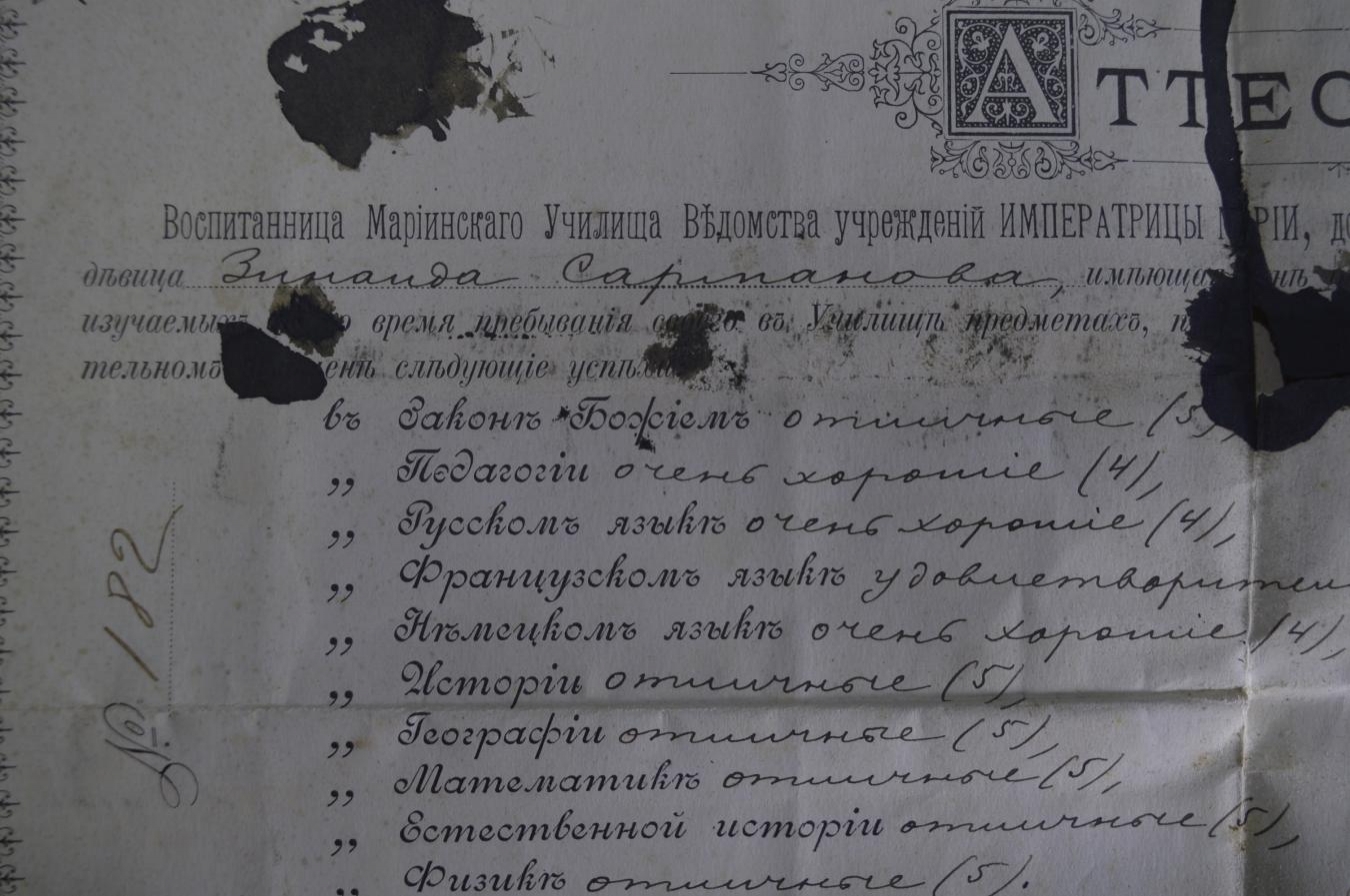 АТТЕС
Воспитанница Маріинскаго Училища Вѣдомства учрежденій ИМПЕРАТРИЦЫ МАРІИ,
дѣвица Зинаида Сартанова, имѣющая
изучаемыхъ во время пребыванія своего въ Училищѣ предметахъ,
слѣдующіе успѣхи
въ Законѣ Божіемъ отличные (5),
„ Педагогіи очень хорошіе (4),
„ Русскомъ языкѣ очень хорошіе (4),
„ Французскомъ языкѣ удовлетворител
„ Нѣмецкомъ языкѣ очень хорошіе (4),
„ Исторіи отличные (5),
„ Географіи отличные (5),
„ Математикѣ отличные (5),
„ Естественной исторіи отличные (5),
„ Физикѣ отличные (5).
№ 182